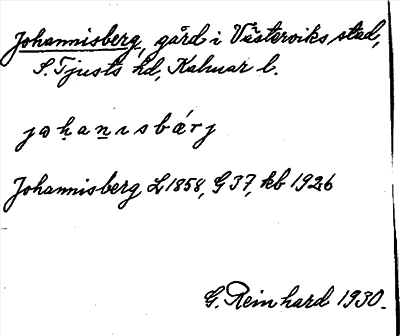 Johannisberg, gård i Västerviks stad,
S. Tjusts hd, Kalmar l.
jɷḥaṉısbárj
Johannisberg L 1858, G 37, kb 1926
G. Reinhard 1930.